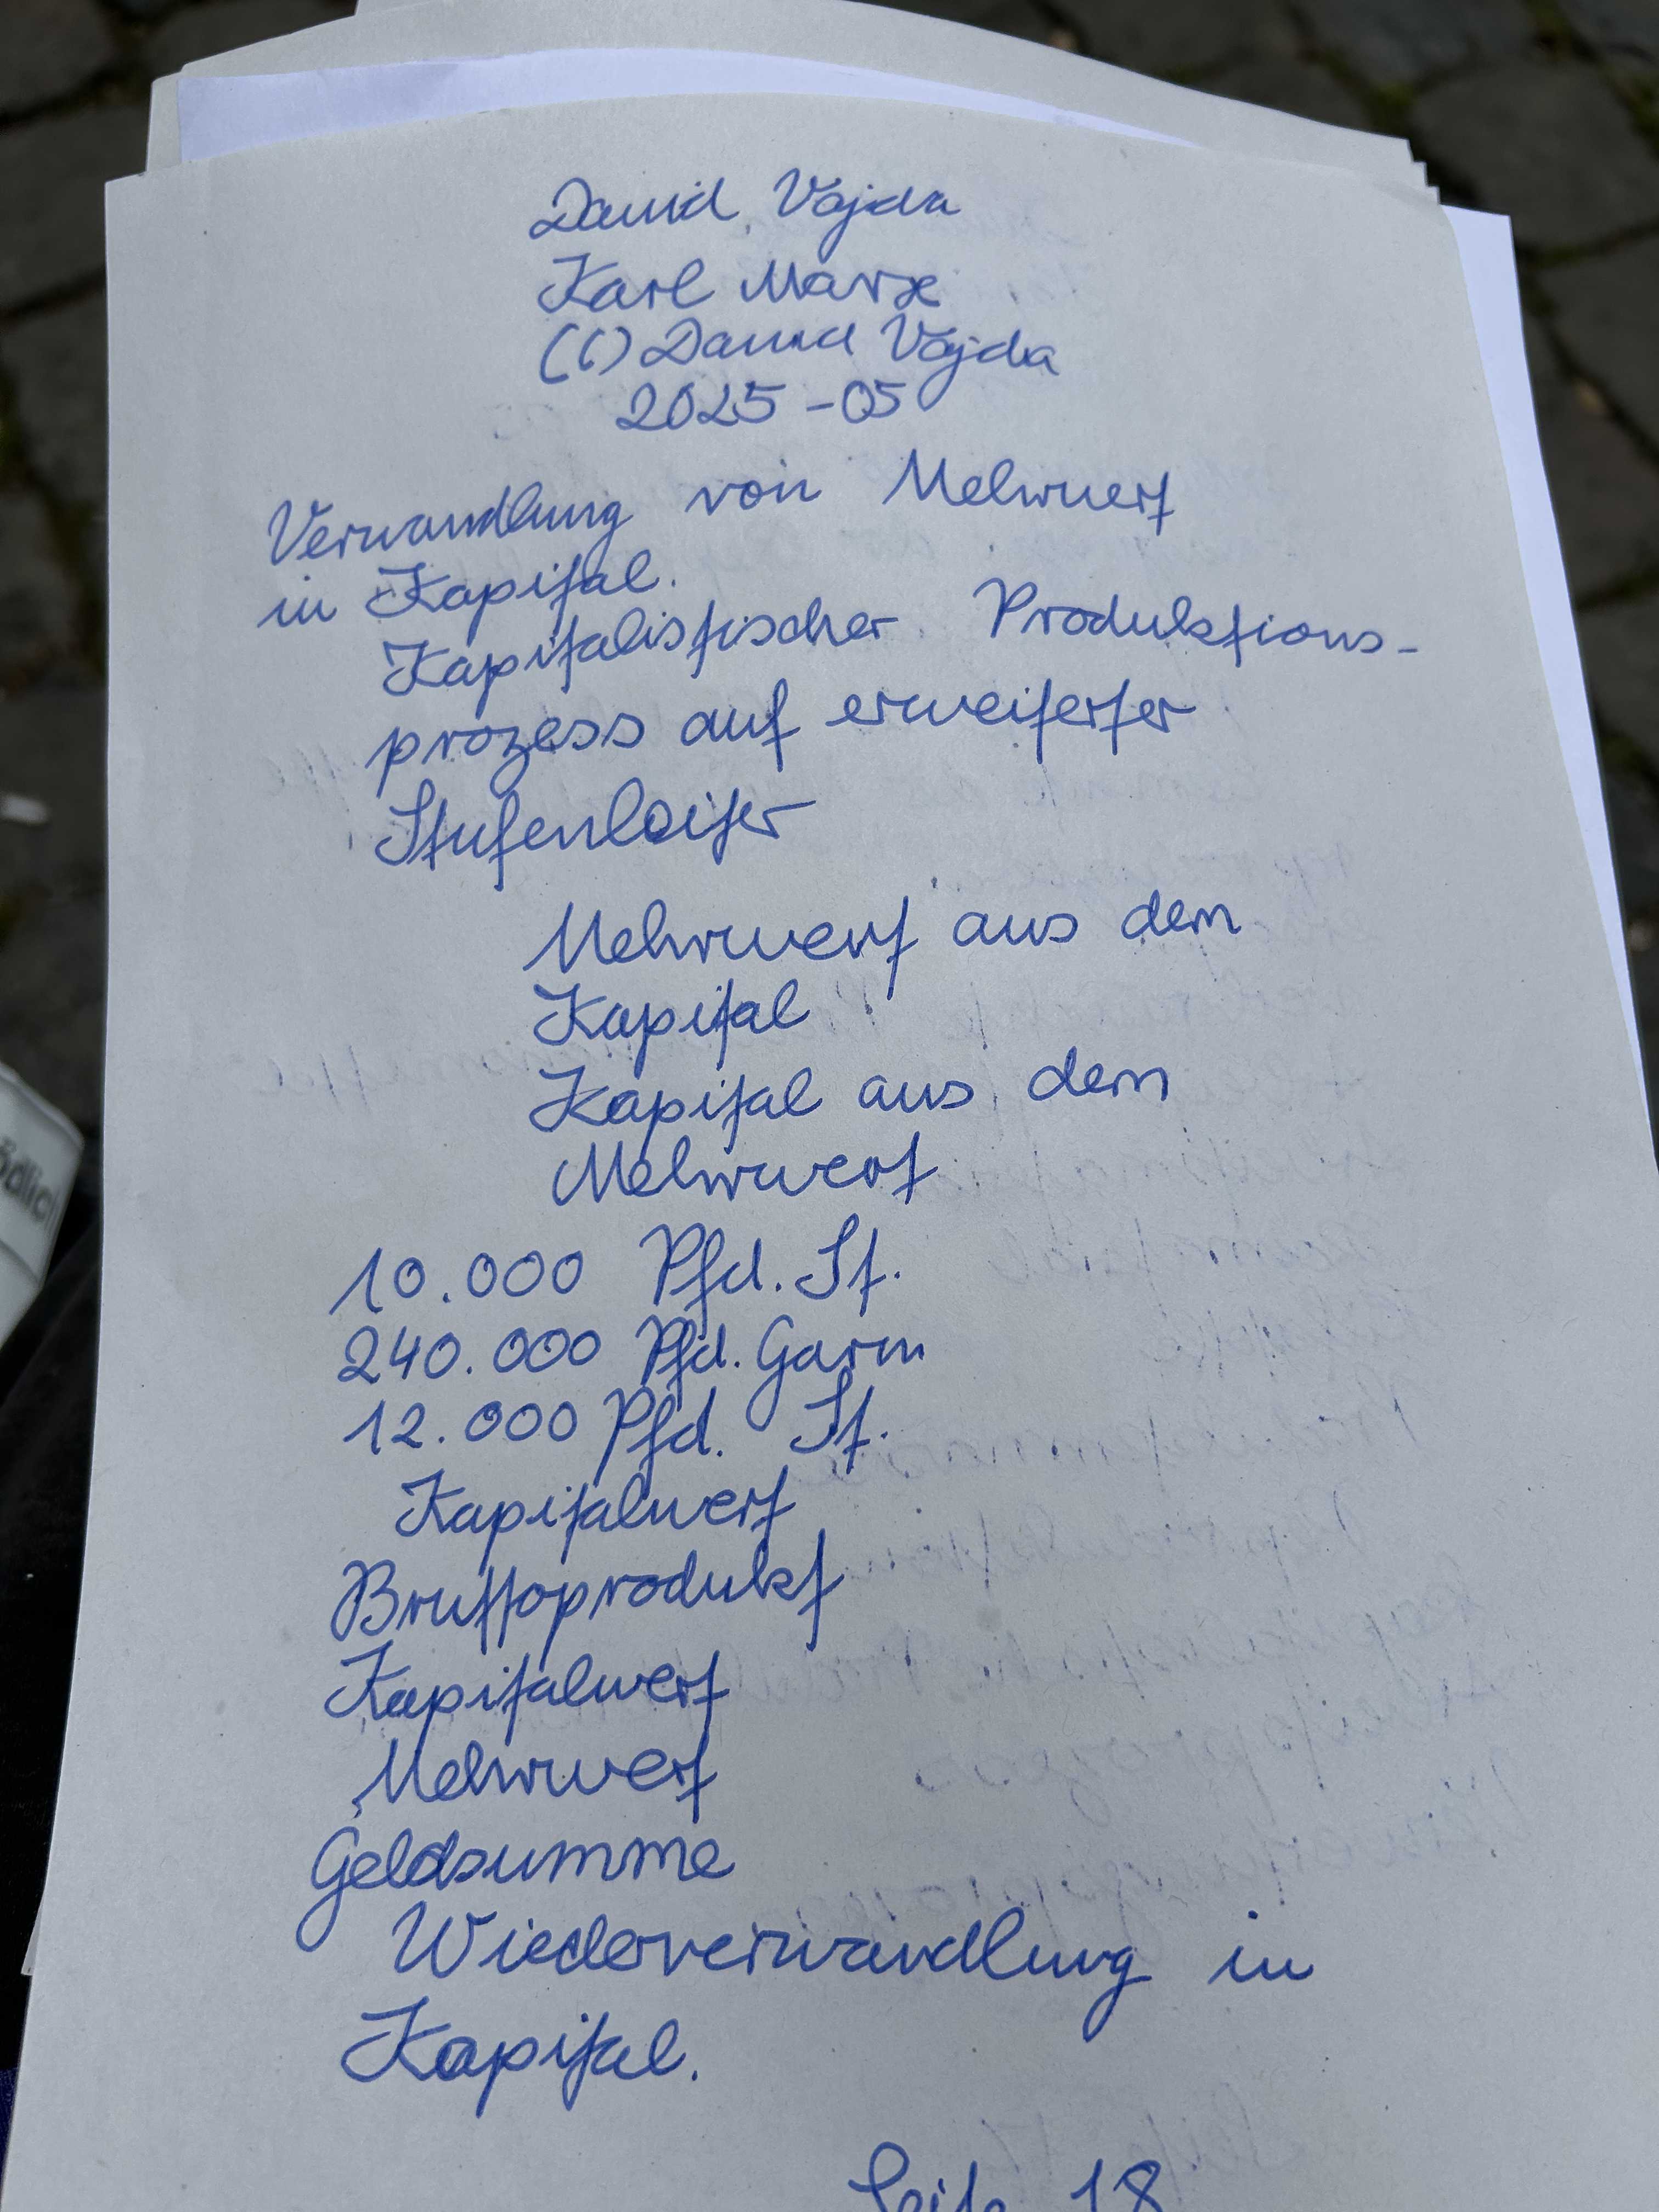 David Vajda
Karl Marx
(C) David Vajda
2025-05
Verwandlung von Mehrwert
in Kapital.
Kapitalistischer Produktions-
prozess auf erweiterter
Stufenleiter
Mehrwert aus dem
Kapital
Kapital aus dem
Mehrwert
10.000 Pfd. St.
240.000 Pfd. Garn
12.000 Pfd. St.
Kapitalwert
Bruttoprodukt
Kapitalwert
Mehrwert
Geldsumme
Wiederverwandlung in
Kapital.
Seite 18